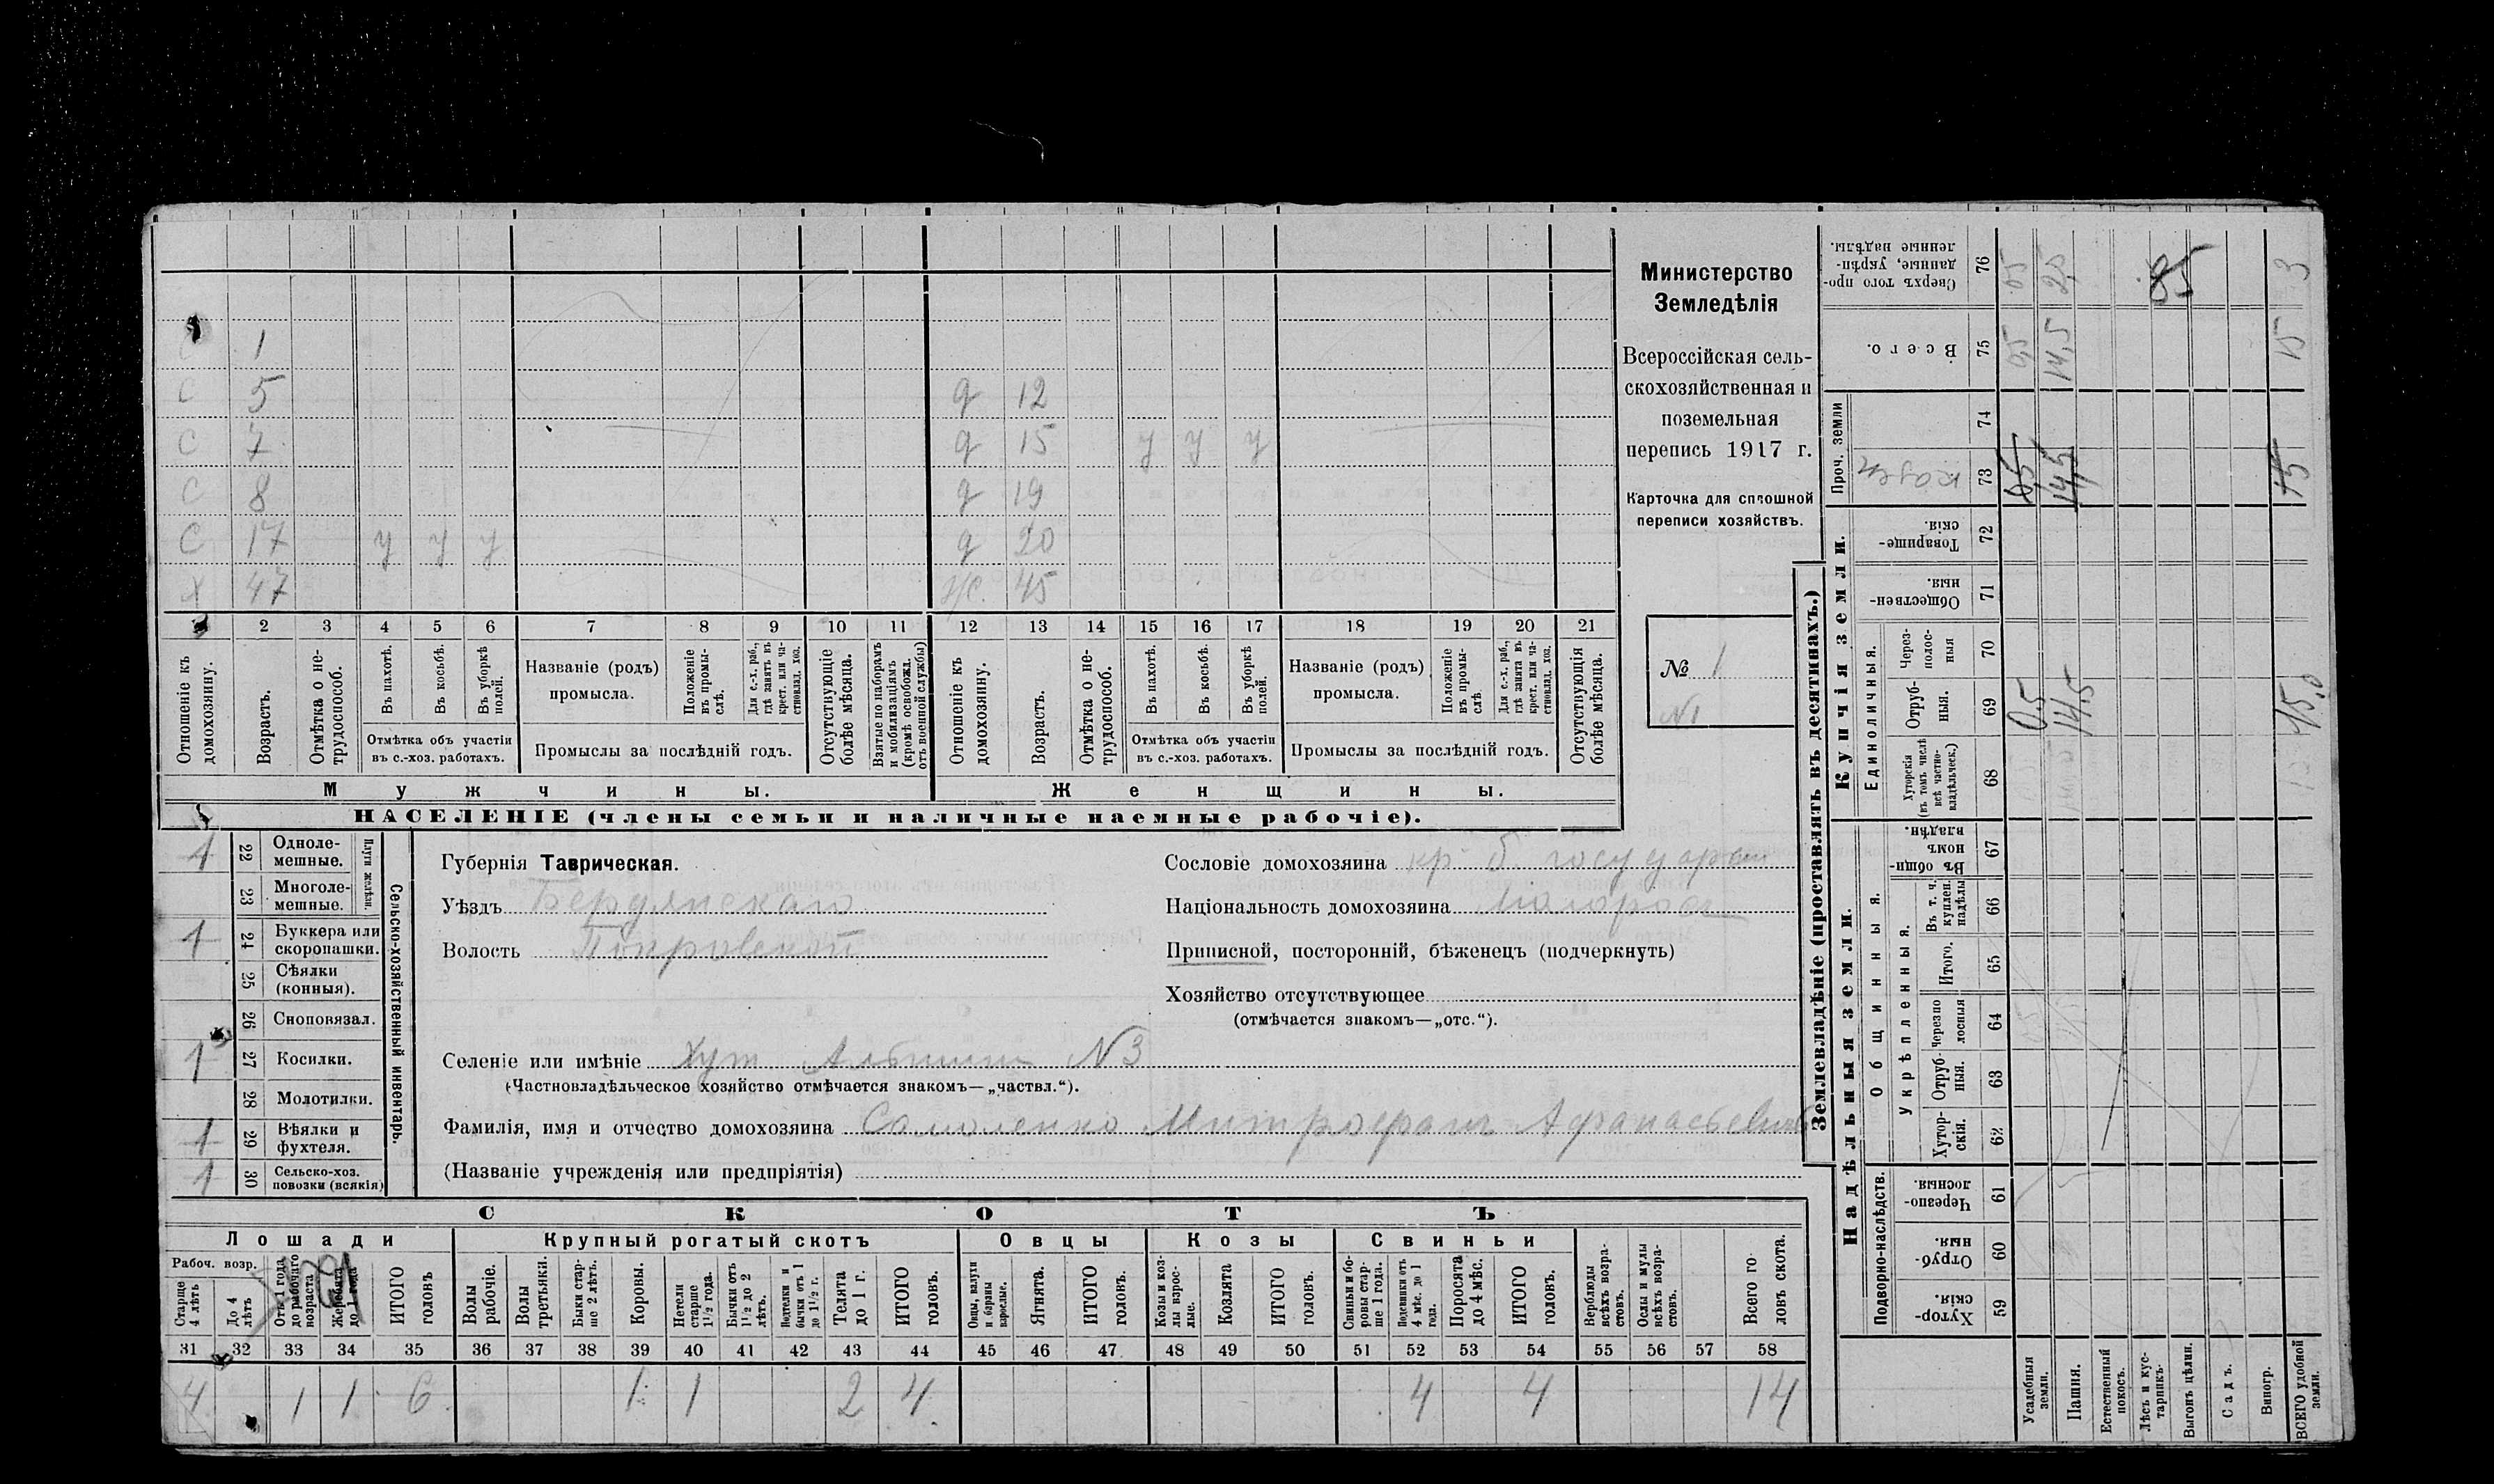 1
С 5 д 12
С 7 д 15 у у у
С 8 д 19
С 17 у у у д 20
Х 47 45
2 3 4 5 6 7 8 9 10 11 12 13 14 15 16 17 18 19 20 21
Отношеніе къ домохозяину.
Возрастъ.
Отмѣтка о не-
трудоспособ.
Въ пахотѣ.
Въ косьбѣ.
Въ уборкѣ полей.
Отмѣтка объ участіи
въ с.-хоз. работахъ.
Названіе (родъ)
промысла.
Положеніе въ промы-
слѣ.
Для с.-х. раб.,
гдѣ занятъ въ
крест. или ча-
стновлад. хоз.
Промыслы за послѣдній годъ.
Отсутствующіе
болѣе мѣсяца.
Взятые по наборамъ
и мобилизаціямъ
(кромѣ освобожд.
отъ военной службы)
Отношеніе къ
домохозяину.
Возрастъ.
Отмѣтка о не-
трудоспособ.
Въ пахотѣ.
Въ косьбѣ.
Въ уборкѣ
полей.
Отмѣтка объ участіи
въ с.-хоз. работахъ.
Названіе (родъ)
промысла.
Положеніе
въ промы-
слѣ
Для с.-х. раб.,
гдѣ занята въ
крест. или ча-
стновлад. хоз.
Промыслы за послѣдній годъ.
Отсутствующія
болѣе мѣсяца.
Мужчины.
Женщины.
НАСЕЛЕНІЕ (члены семьи и наличные наемные рабочіе).
Министерство
Земледѣлія
Всероссійская сель-
скохозяйственная и
поземельная
перепись 1917 г.
Карточка для сплошной
переписи хозяйствъ.
№ 1
№1
1 22 Одноле-
мешные.
23 Многоле-
мешные.
Плуги желѣзн.
1 24 Буккера или
скоропашки.
25 Сѣялки
(конныя).
26 Сноповязал.
1 27 Косилки.
28 Молотилки.
1 29 Вѣялки и
фухтеля.
1 30 Сельско-хоз.
повозки (всякія)
Сельско-хозяйственный инвентарь.
Губернія Таврическая.
Уѣздъ Бердянскаго
Волость Покровской
Сословіе домохозяина кр. б. государст
Національность домохозяина малоросъ
Приписной, посторонній, бѣженецъ (подчеркнуть)
Хозяйство отсутствующее
(отмѣчается знакомъ—„отс.“).
Селеніе или имѣніе Хут №3
(Частновладѣльческое хозяйство отмѣчается знакомъ—„частвл.“).
Фамилія, имя и отчество домохозяина Самоленко Митрофанъ Афанасьевичъ
(Названіе учрежденія или предпріятія)
СКОТЪ
Лошади
Крупный рогатый скотъ
Овцы
Козы
Свиньи
Рабоч. возр.
Старше
4 лѣтъ
До 4
лѣтъ
Отъ 1 года
до рабочаго
возраста
Жеребята
до 1 года
ИТОГО
головъ
Волы
рабочіе.
Волы
третьяки.
Быки стар-
ше 2 лѣтъ.
Коровы.
Нетели
старше
1½ года.
Бычки отъ
1½ до 2
лѣтъ.
Подтелки и
бычки отъ 1
до 1½ г.
Телята
до 1 г.
ИТОГО
головъ.
Овцы, валухи
и бараны
взрослые.
Ягнята.
ИТОГО
головъ.
Козы и коз-
лы взрос-
лые.
Козлята
ИТОГО
головъ.
Свиньи и бо-
ровы стар-
ше 1 года.
Подсвинки отъ
4 мѣс. до 1
года.
Поросята
до 4 мѣс.
ИТОГО
головъ.
Верблюды
всѣхъ возра-
стовъ.
Ослы и мулы
всѣхъ возра-
стовъ.
Всего го-
ловъ скота.
31 32 33 34 35 36 37 38 39 40 41 42 43 44 45 46 47 48 49 50 51 52 53 54 55 56 57 58
4 1 1 6 1 1 2 4 4 4 14
Землевладѣніе (проставлять въ десятинахъ.)
Сверхъ того про-
данные, укрѣп-
ленные надѣлы.
76 0,5 2,5 85 3
Всего.
75 0,5 14,5 15
Проч. земли
74
73 0,5 14,5 15
Купчія земли.
Товарище-
скія.
72
Обществен-
ныя.
71
Единоличныя.
Через-
полос-
ныя
70
Отруб-
ныя.
69 0.5 14,5 15,0
Хуторскія
(въ томъ числѣ
всѣ частно-
владѣльческ.)
68
Надѣльныя земли.
Общинныя.
Въ общи-
номъ
владѣн.
67
Укрѣпленныя.
Въ т. ч.
куплен.
надѣлы
66
Итого.
65
Черезпо
лосныя
64
Отруб-
ныя.
63
Хутор-
скія.
62
Подворно-наслѣдств.
Черезпо-
лосныя.
61
Отруб-
ныя.
60
Хутор-
скія.
59
Усадебныя
земли.
Пашня.
Естественный
покосъ.
Лѣсъ и кус-
тарникъ.
Выгонъ цѣлин.
Садъ.
Виногр.
ВСЕГО удобной
земли.